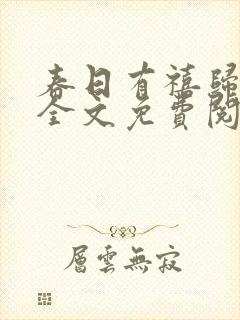 春日有禧歸
全文免費閱
層雲無寂